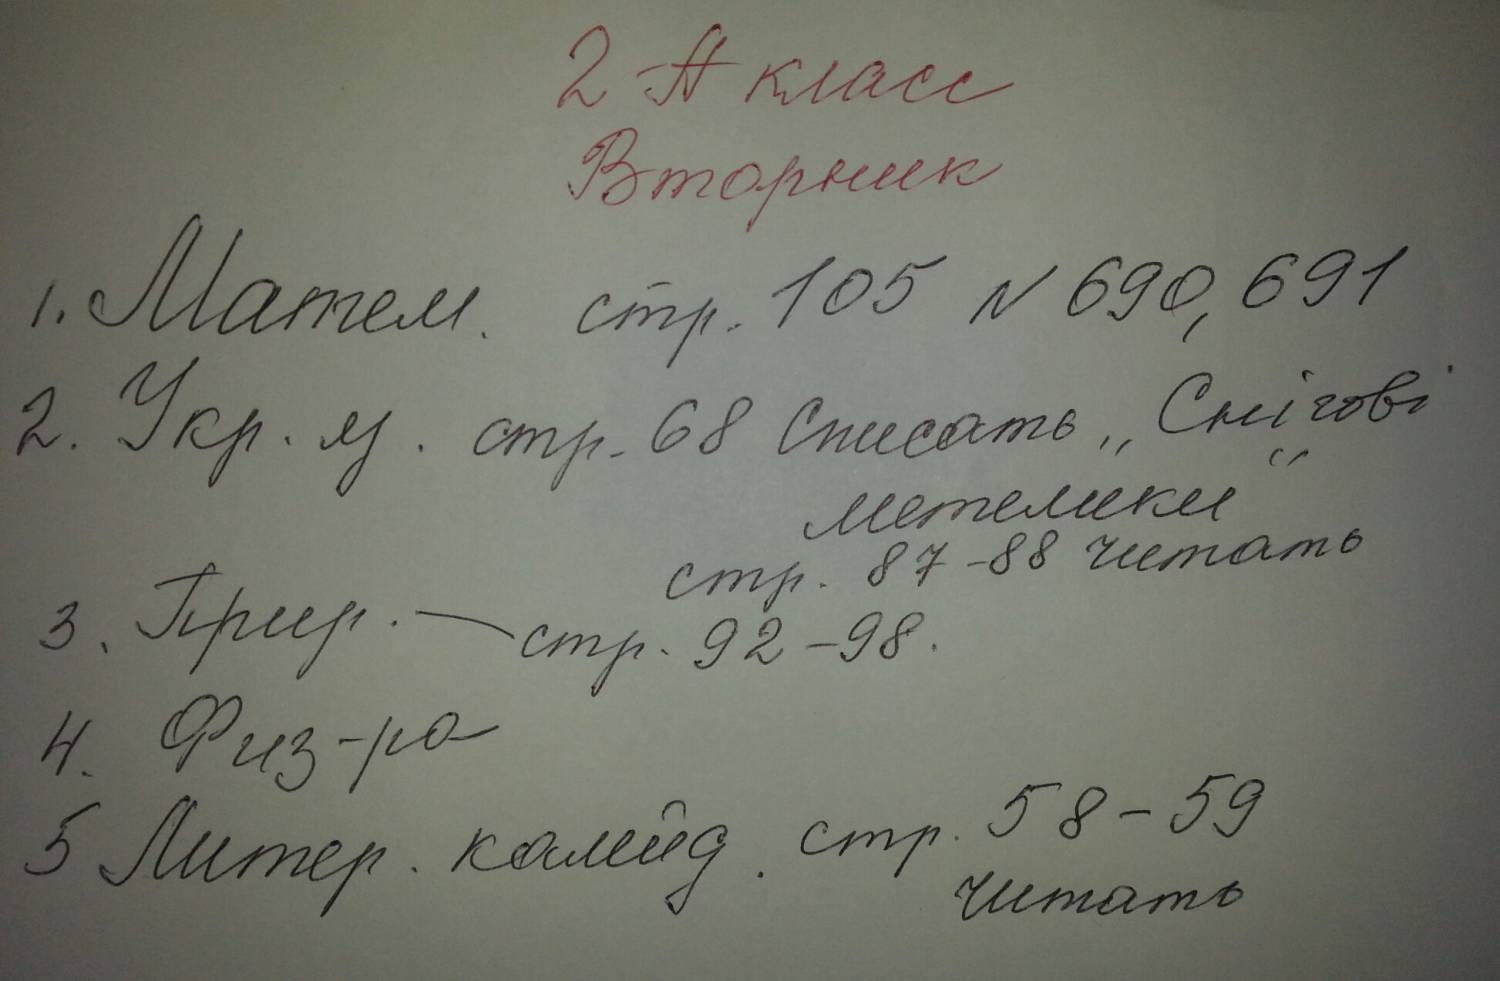 2-А класс
Вторник
1. Матем. стр. 105 N 690, 691
2. Укр. я. стр. 68 Списать „Снігові
метелики“
стр. 87-88 читать
3. Прир. — стр. 92-98.
4. Физ-ра
5 Литер. калейд. стр. 58-59
читать